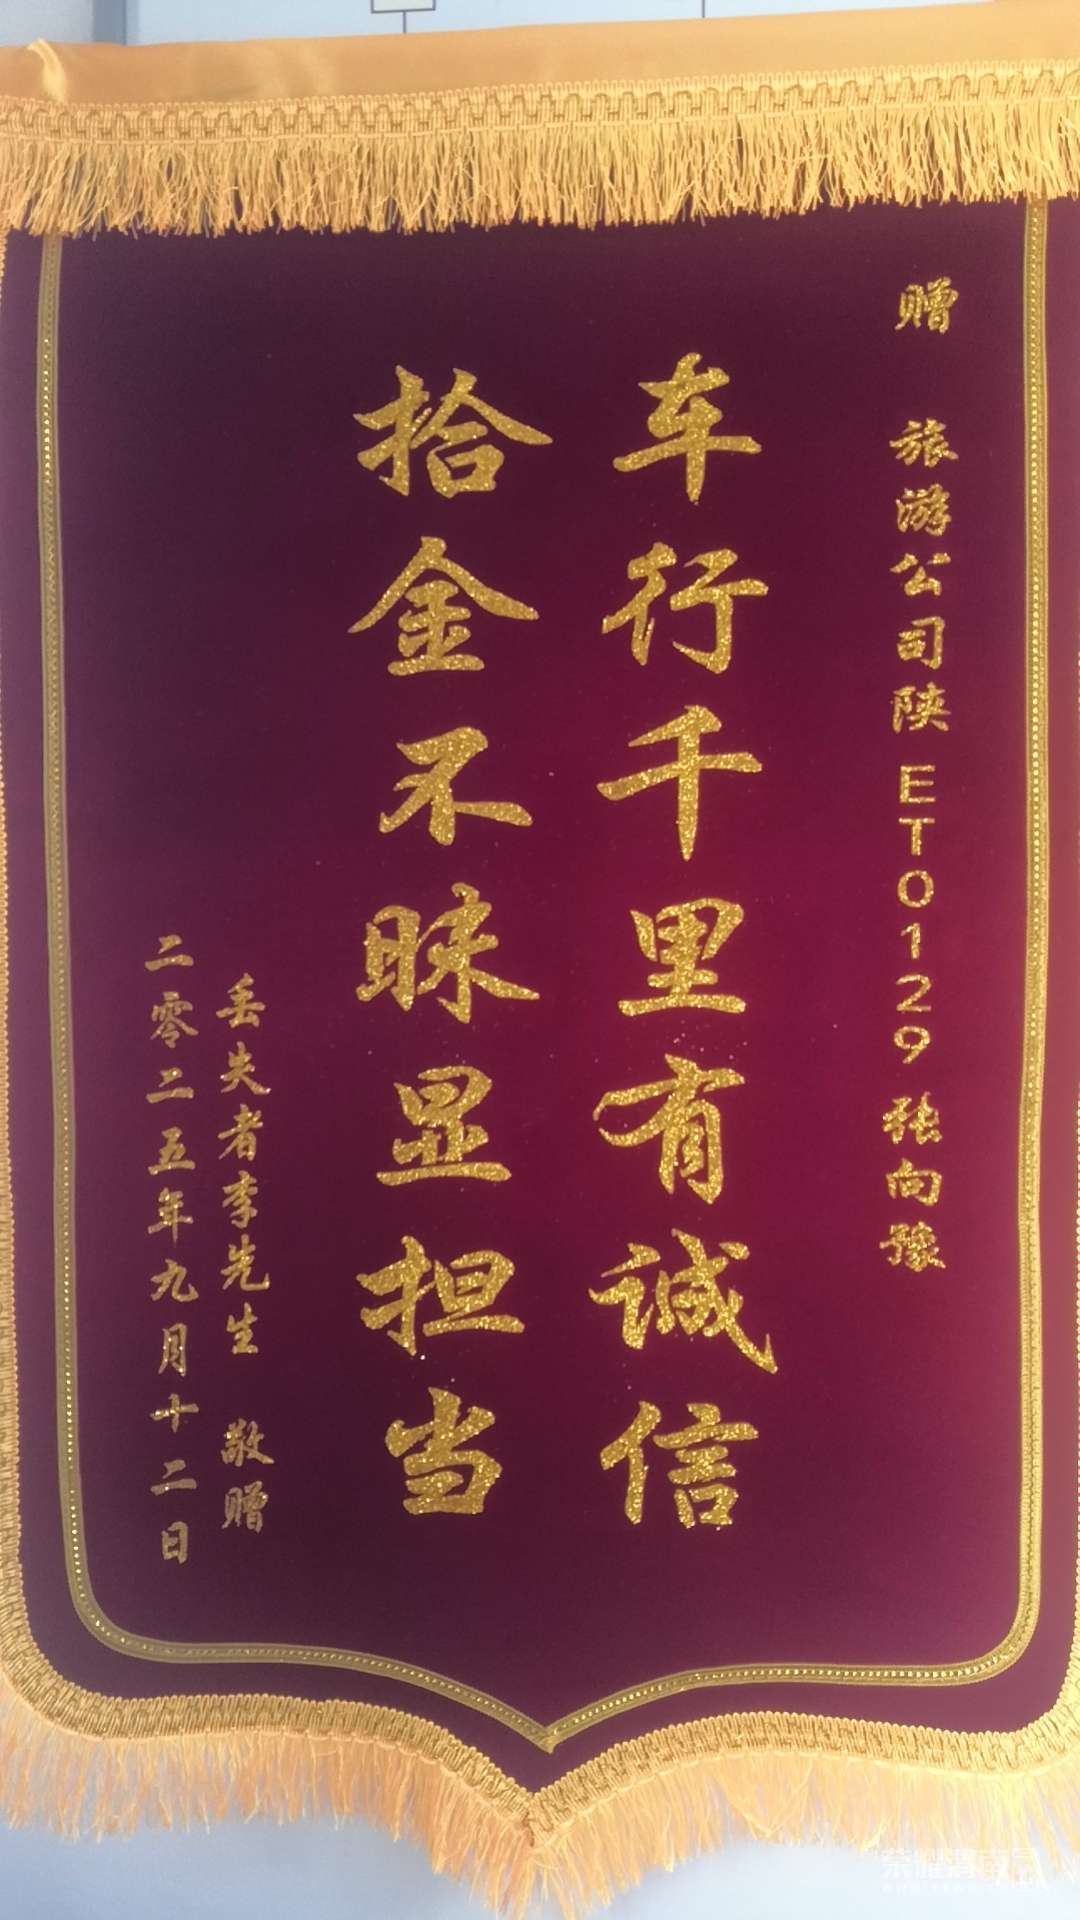 赠 旅游公司陕ET0129 张向豫
车行千里有诚信
拾金不昧显担当
丢失者李先生 敬赠
二零二五年九月十二日